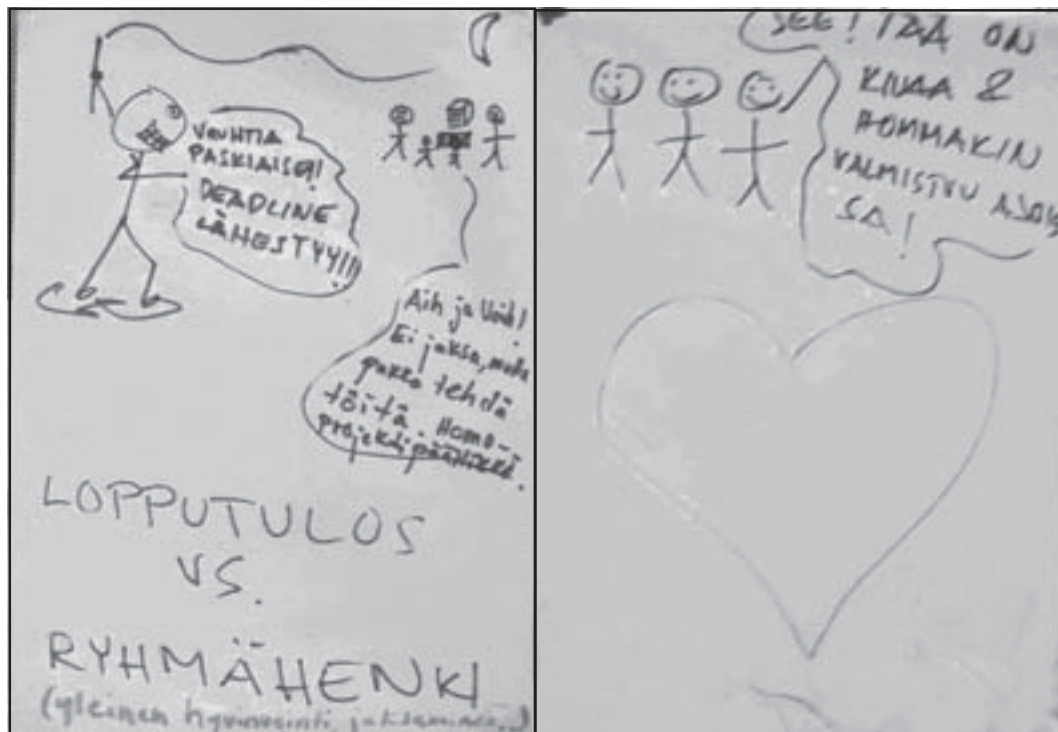 VAUHTIA
PASKIAISET!
DEADLINE
LÄHESTYY!!!
Aih ja Voih!
Ei jaksa, mutta
pakko tehdä
töitä. Homo-
projektipäällikkö.
LOPPUTULOS
VS.
RYHMÄHENKI
(yleinen hyvinvointi, jaksaminen...)
JEE! TÄÄ ON
KIVAA &
HOMMAKIN
VALMISTUU
SA!